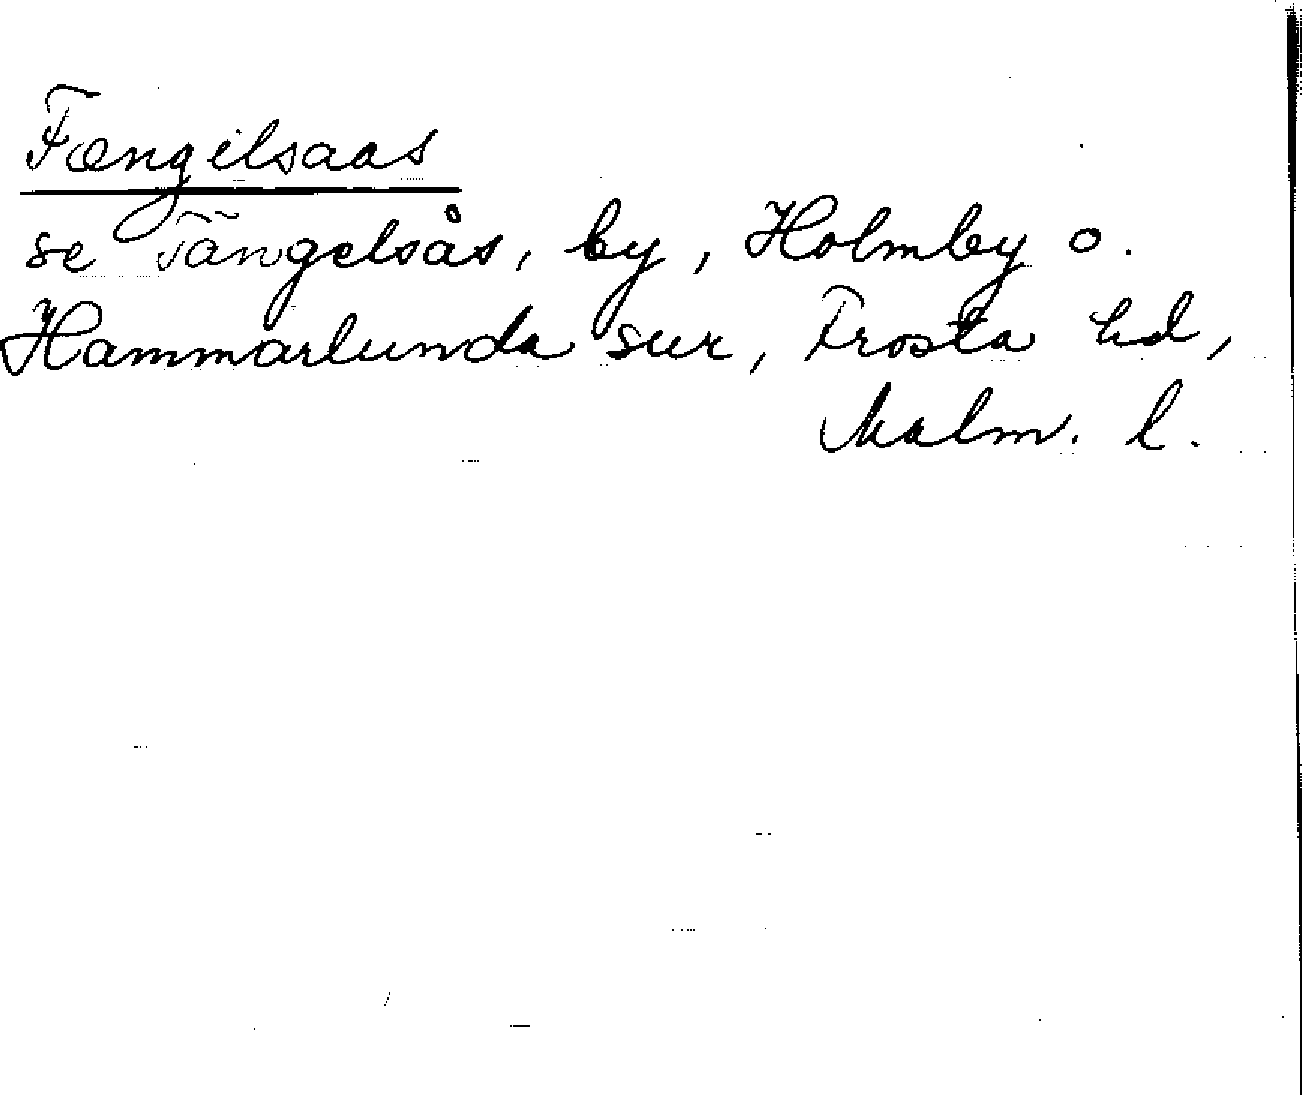 Fængilsaas
se Tängelsås, by, Holmby o.
Hammarlunda snr, Frosta hd,
Malm. l.